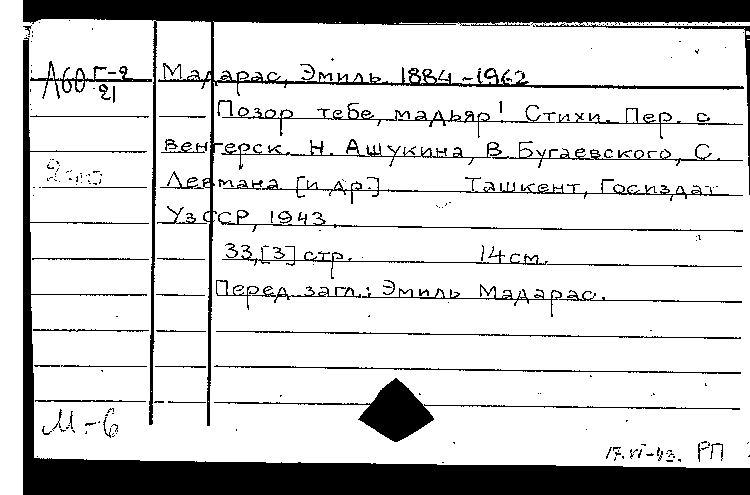 Л60 Г-2
21
Мадарас, Эмиль. 1884-1962
Позор тебе, мадьяр! Стихи. Пер. с
венгерск. Н. Ашукина, В. Бугаевского, С.
Левмана [и др.] Ташкент, Госиздат
УзССР, 1943.
33,[3] стр. 14 см.
Перед загл.: Эмиль Мадарас.
М-6
17.VI-43. РП